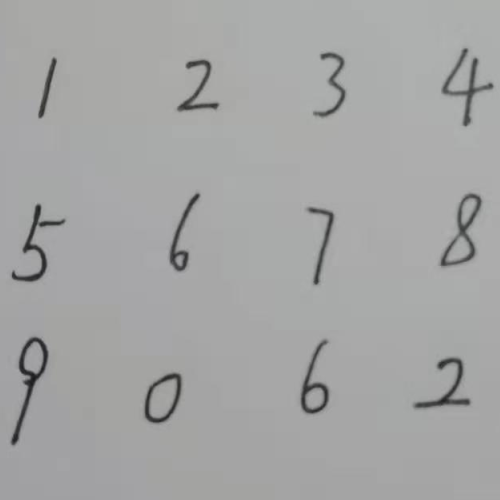 1 2 3 4
5 6 7 8
9 0 6 2